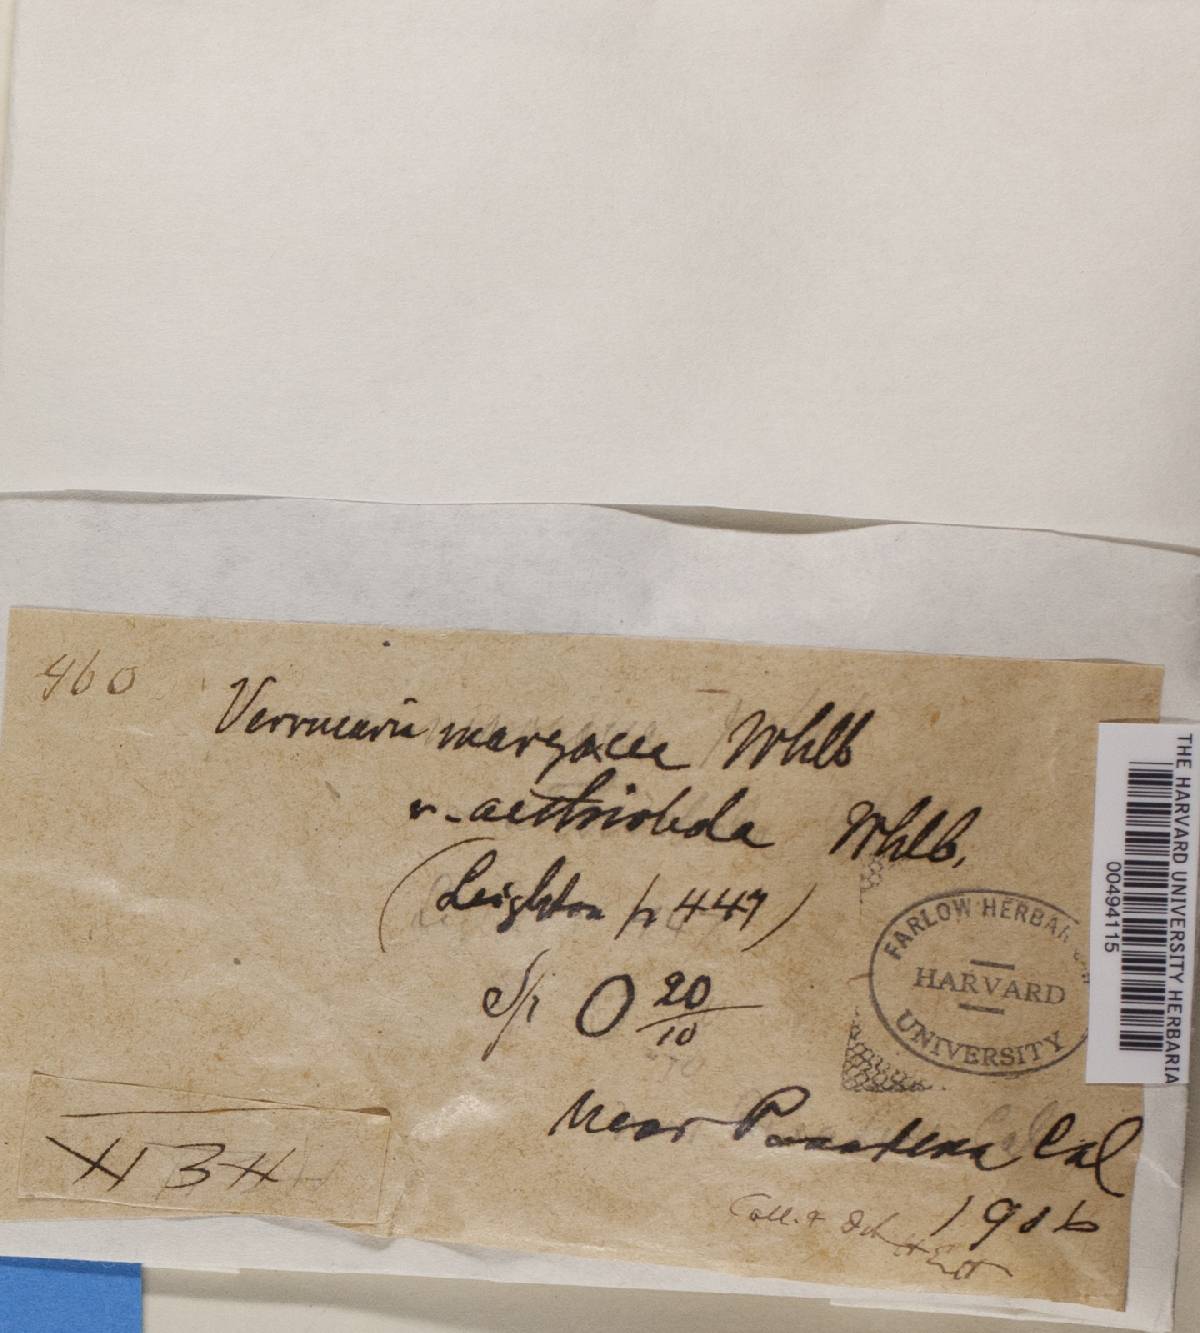 460
Verrucaria margacea Whlb
v. aethiobola Whlb.
(Leighton p 447)
Sp. O 20/10
Near Pasadena Cal
1906
Coll. &
FARLOW HERBAR
HARVARD
UNIVERSITY
THE HARVARD UNIVERSITY HERBARIA
00494115